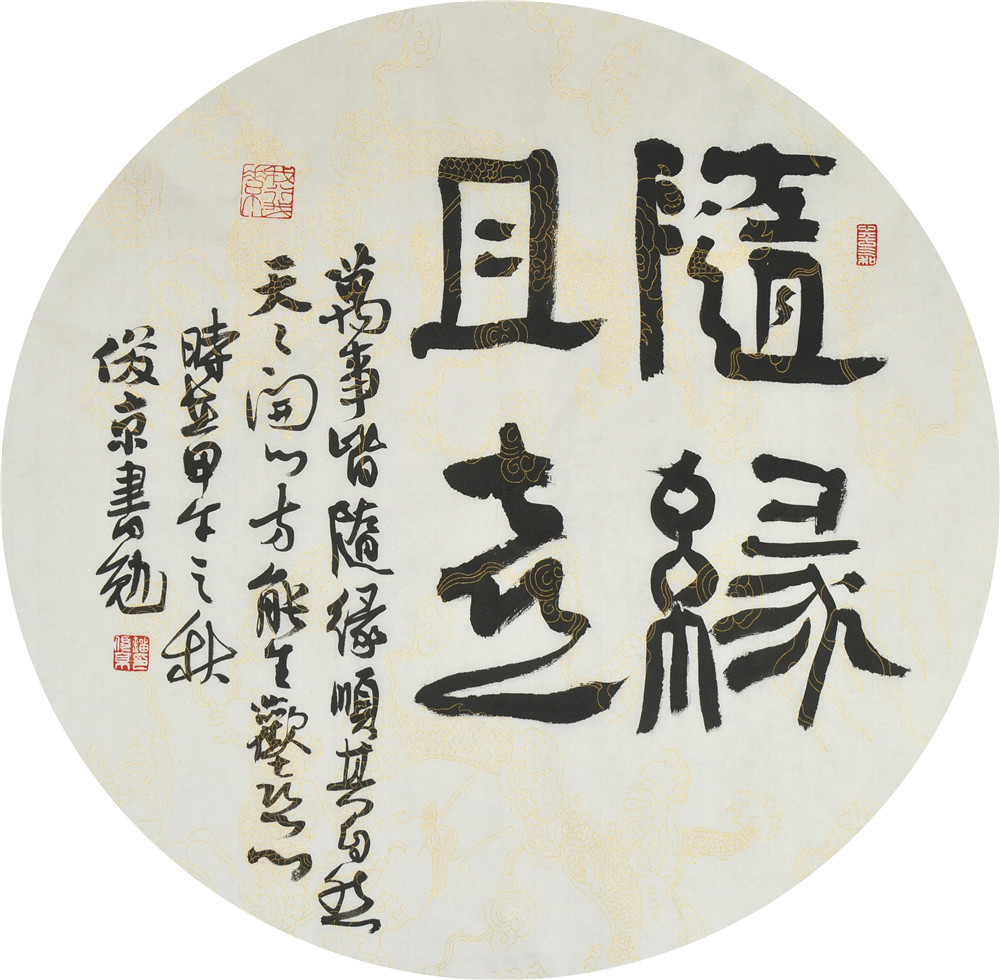 隨緣
且走
萬事皆隨緣順其自然
天々開心方能生歡喜心
時在甲午之秋
俊京書勉